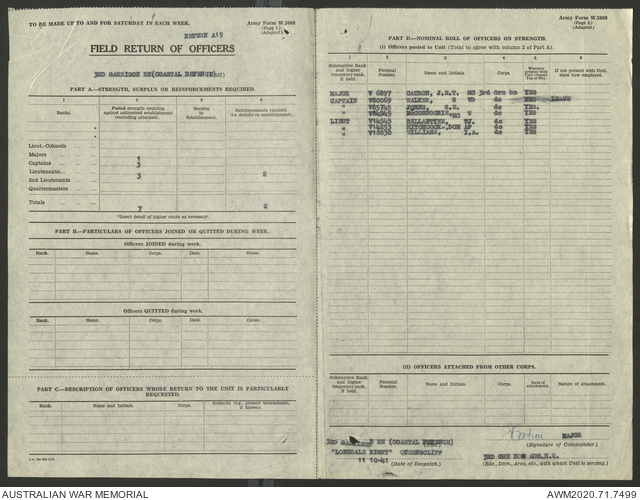 TO BE MADE UP TO AND FOR SATURDAY IN EACH WEEK.
Army Form W.3008
(Page 1.)
(Adapted.)
RETURN A19
FIELD RETURN OF OFFICERS
3RD GARRISON BN (COASTAL DEFENCE)
PART A.—STRENGTH, SURPLUS OR REINFORCEMENTS REQUIRED.
1 2 3 4
Ranks. Posted strength counting against authorised establishment (excluding attached). Surplus to Establishment. Reinforcements required (i.e. deficits on establishment).
Lieut.-Colonels
Majors 1
Captains 3
Lieutenants 3 2
2nd Lieutenants
Quartermasters
Totals 7 2
*Insert detail of higher ranks as necessary.
PART B.—PARTICULARS OF OFFICERS JOINED OR QUITTED DURING WEEK.
Officers JOINED during week.
Rank. Name. Corps. Date. Cause.
Officers QUITTED during week.
Rank. Name. Corps. Date. Cause.
PART C.—DESCRIPTION OF OFFICERS WHOSE RETURN TO THE UNIT IS PARTICULARLY REQUESTED.
Rank. Name and Initials. Corps. Remarks (e.g., present whereabouts, if known).
Army Form W.3008
(Page 2.)
(Adapted.)
PART D.—NOMINAL ROLL OF OFFICERS ON STRENGTH.
(i) Officers posted to Unit (Total to agree with column 2 of Part A).
1 2 3 4 5 6
Substantive Rank and higher temporary rank, if held. Personal Number. Name and Initials. Corps. Whether present with Unit (insert Yes or No). If not present with Unit, state how employed.
MAJOR V 6897 CATRON, MC 3rd Grn bn YES
CAPTAIN V80069 S VD do LEAVE
" V85745 do YES.
" MO W do YES
LIEUT BALLANTINE, TJ. do YES
" HITCHCOCK, DCM AP do YES
" WILLIAMS, I.A. do YES
(ii) OFFICERS ATTACHED FROM OTHER CORPS.
Substantive Rank and higher temporary rank, if held. Personal Number. Name and Initials. Corps. Date of attachment. Nature of attachment.
3RD GARRISON BN (COASTAL DEFENCE)
MAJOR
(Signature of Commander.)
"LONSDALE BIGHT" QUEENSCLIFF
11 10-41 (Date of Despatch.)
3RD ADM.H.Q.
(Bde., Divn., Area, etc., with which Unit is serving.)
AUSTRALIAN WAR MEMORIAL
AWM2020.71.7499